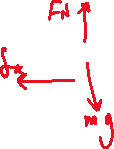 FN
fx
mg